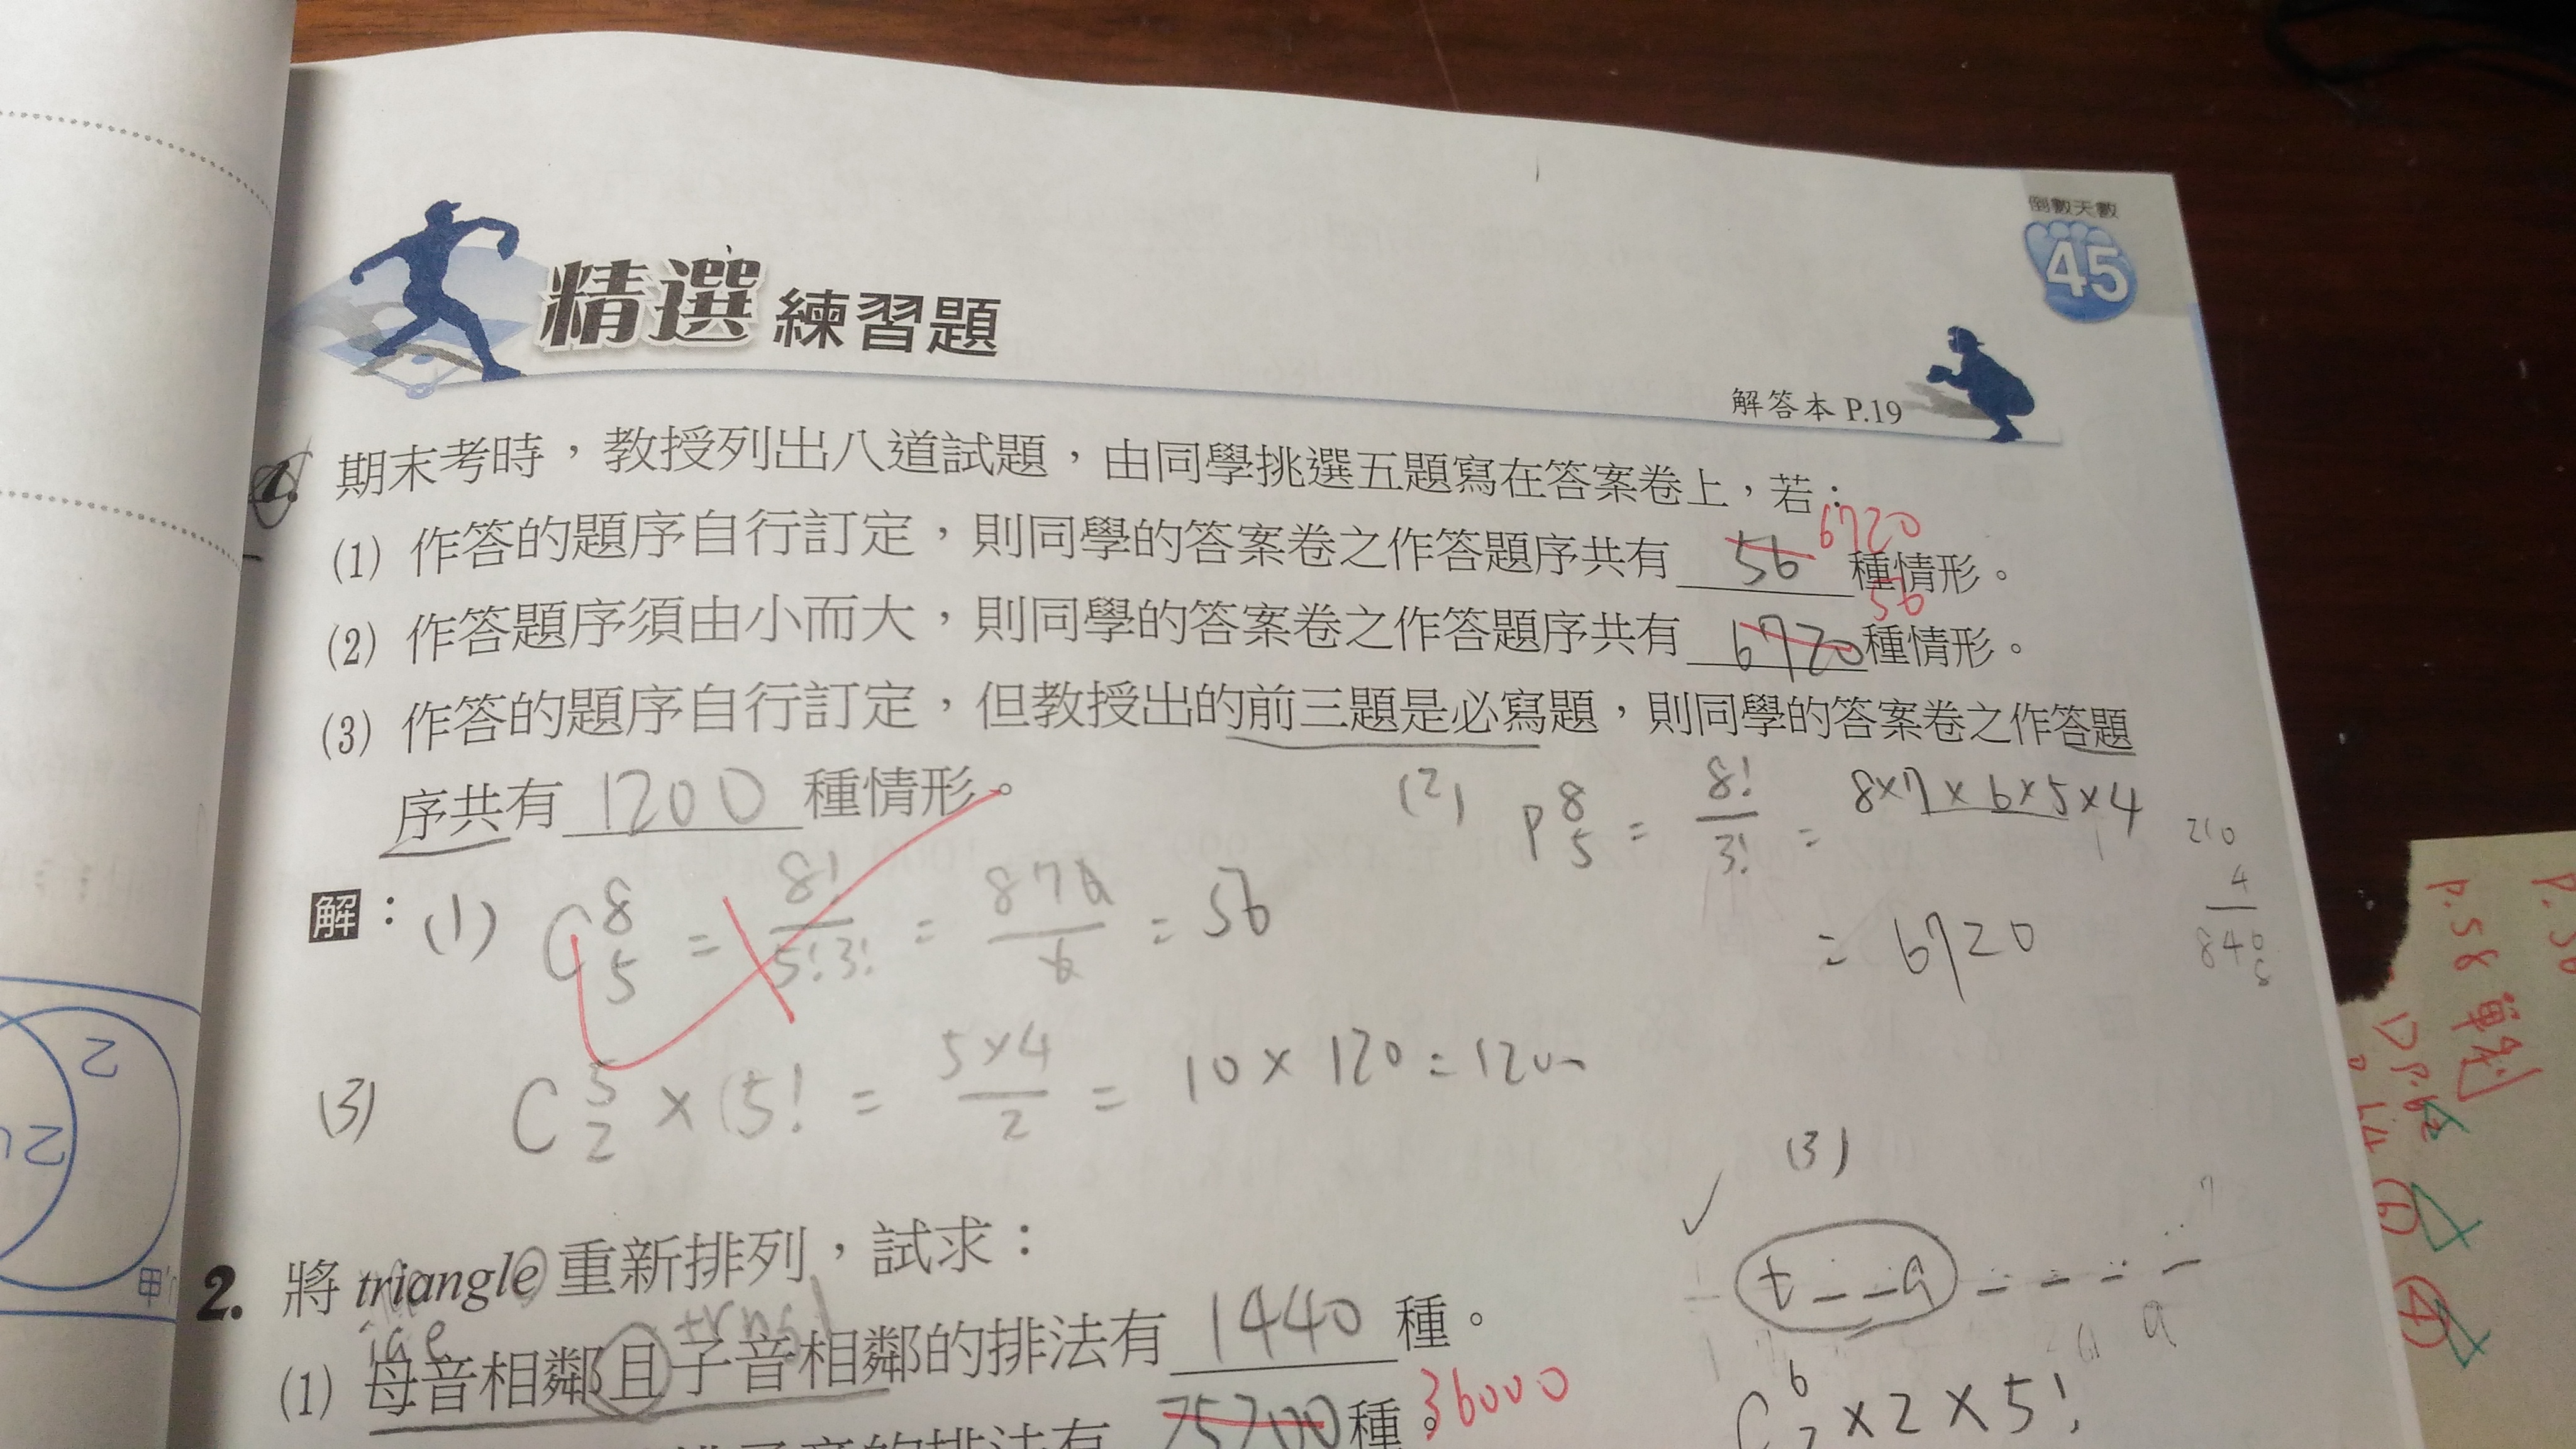 倒數天數
45
精選 練習題
解答本 P.19
1. 期末考時，教授列出八道試題，由同學挑選五題寫在答案卷上，若：
(1) 作答的題序自行訂定，則同學的答案卷之作答題序共有 56 6720 種情形。
(2) 作答題序須由小而大，則同學的答案卷之作答題序共有 6720 56 種情形。
(3) 作答的題序自行訂定，但教授出的前三題是必寫題，則同學的答案卷之作答題
序共有 1200 種情形。
(2) P 8 5 = 8! / 3! = 8×7×6×5×4
= 6720
210
4
840
8
解：(1) C 8 5 = 8! / 5!3! = 876 / 6 = 56
(3) C 5 2 × 5! = 5×4 / 2 = 10 × 120 = 1200
2. 將 triangle 重新排列，試求：
iae
(1) 母音相鄰且子音相鄰的排法有 1440 種。
75200 種。36000
(3)
t _ _ a _ _ _ _
C 6 2 × 2 × 5!
2
甲
P.58 單